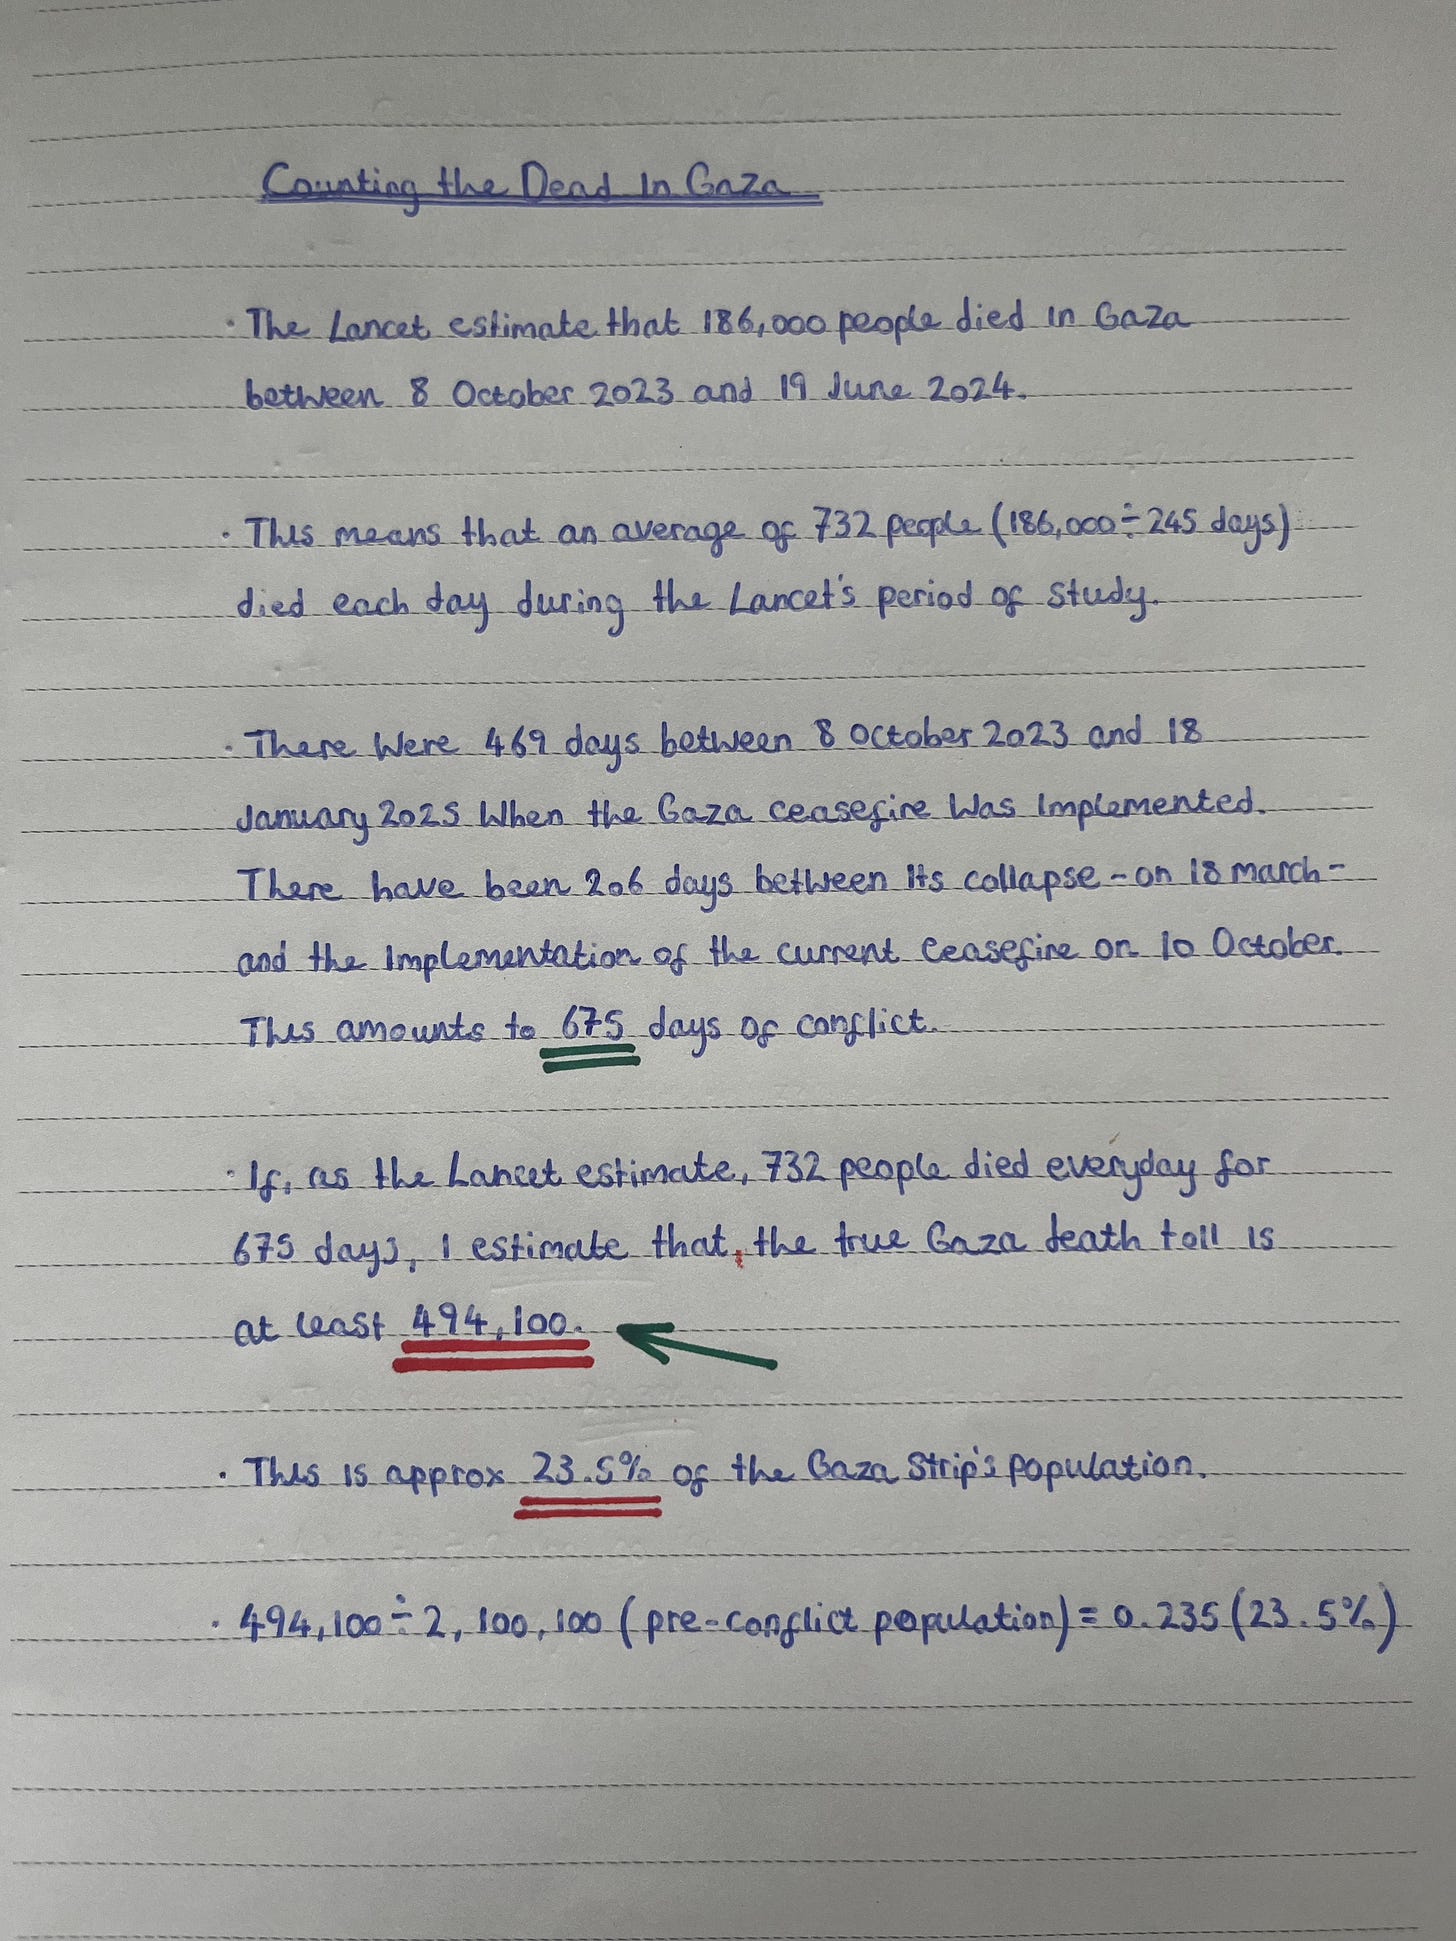 Counting the Dead In Gaza
· The Lancet estimate that 186,000 people died in Gaza
between 8 October 2023 and 19 June 2024.
· This means that an average of 732 people (186,000 ÷ 245 days)
died each day during the Lancet's period of study.
· There were 469 days between 8 October 2023 and 18
January 2025 When the Gaza ceasefire was implemented.
There have been 206 days between its collapse - on 18 march -
and the implementation of the current ceasefire on 10 October.
This amounts to 675 days of conflict.
· If, as the Lancet estimate, 732 people died everyday for
675 days, I estimate that, the true Gaza death toll is
at least 494,100.
· This is approx 23.5% of the Gaza Strip's population.
· 494,100 ÷ 2,100,100 (pre-conflict population) = 0.235 (23.5%)